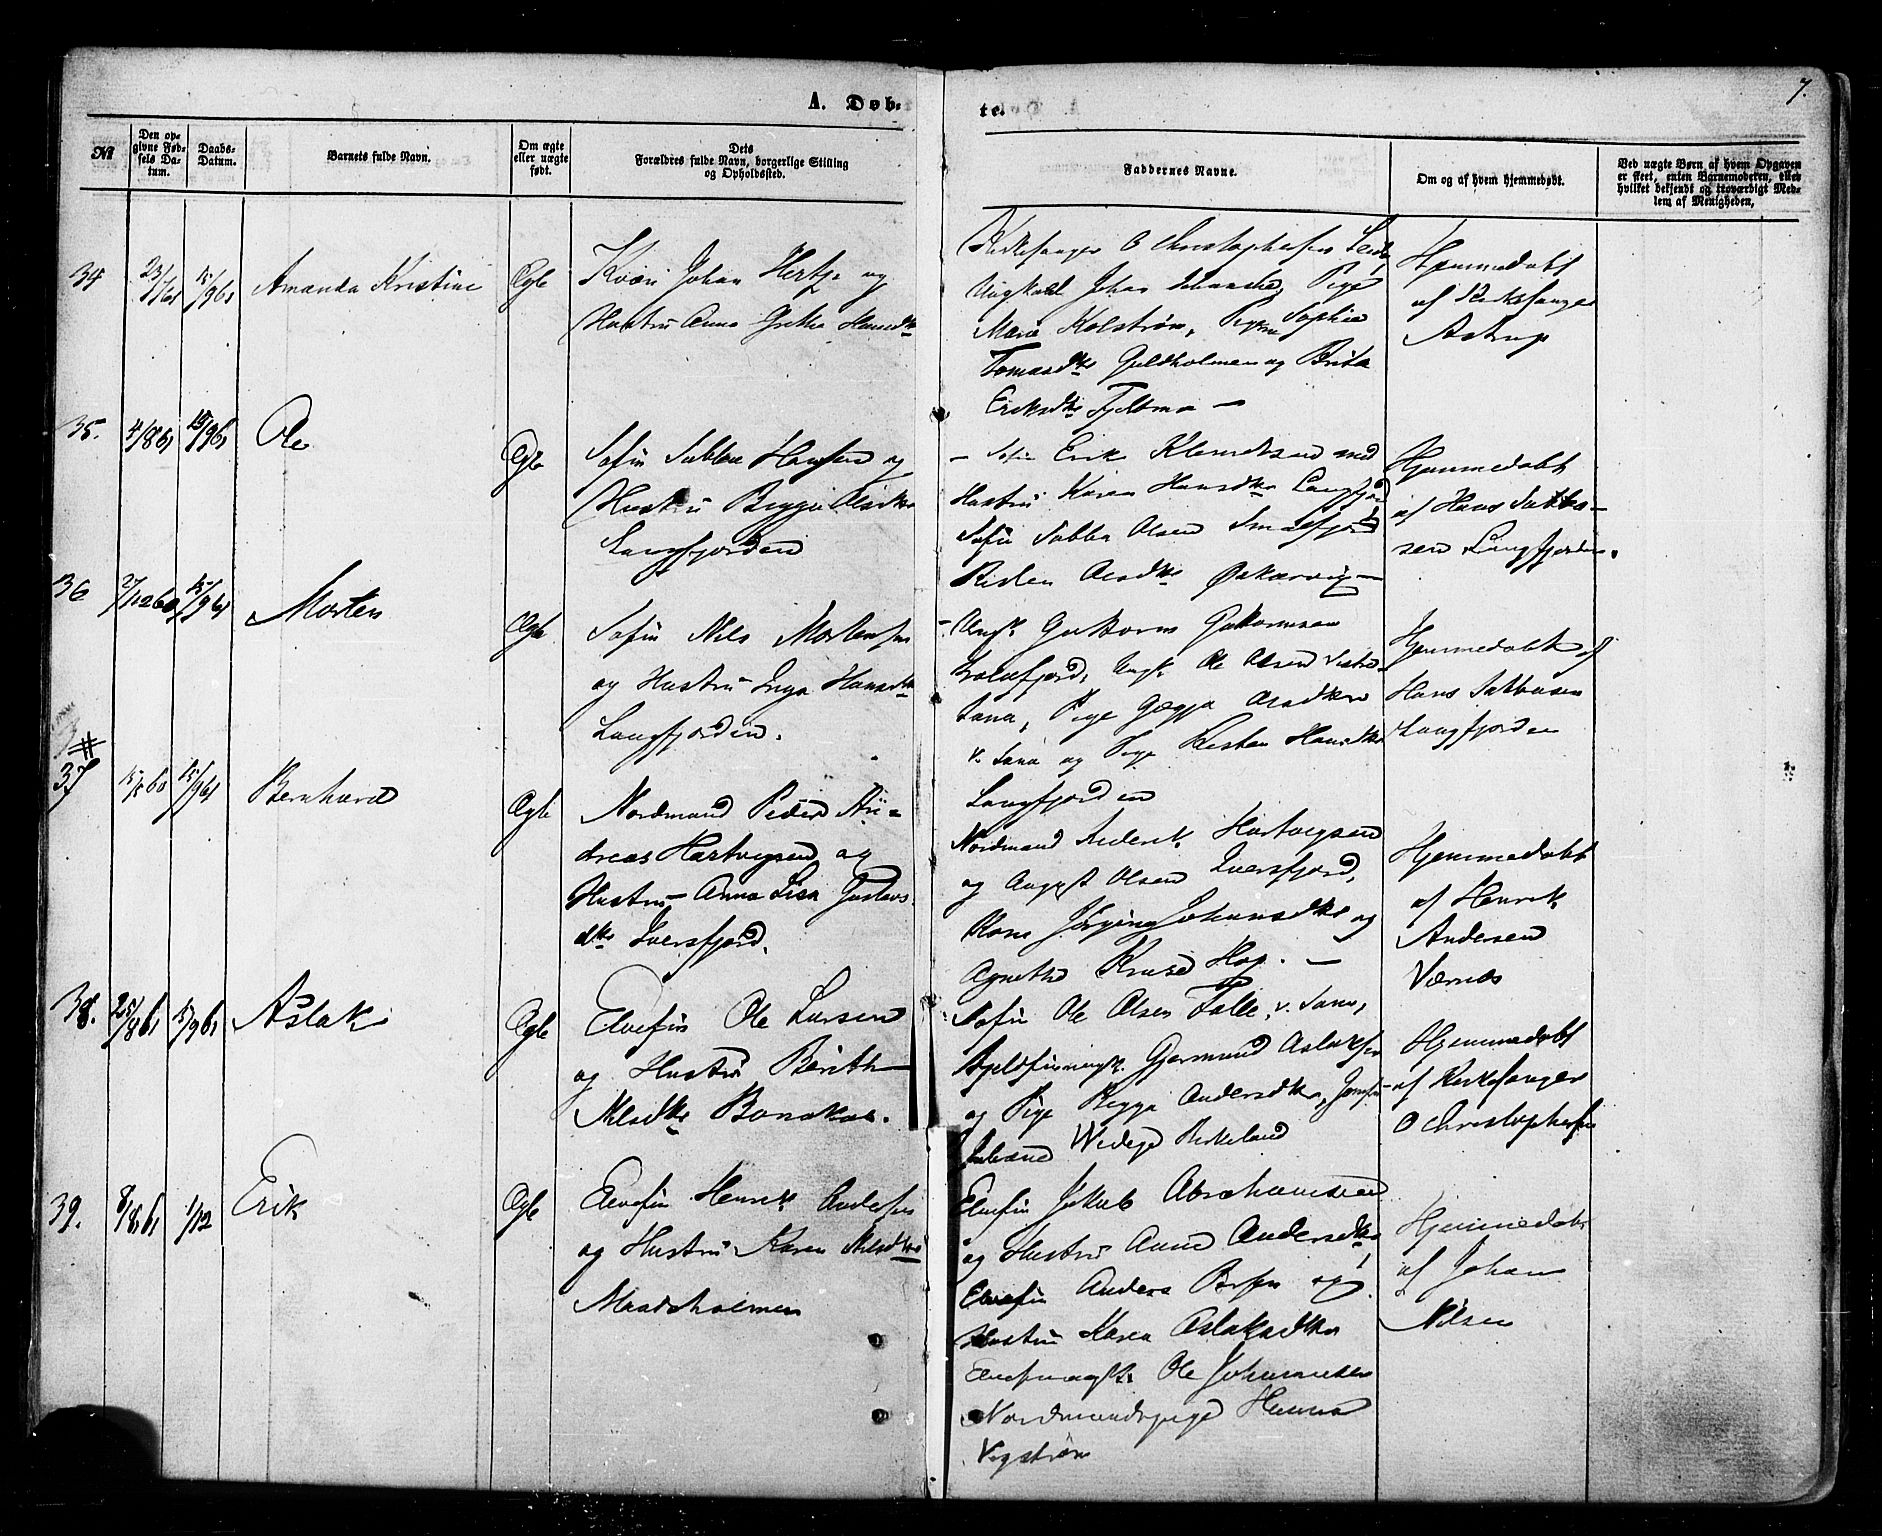 7.
A. Døb-
te.
№
Den op-
givne Fød-
sels Da-
tum.
Daabs-
Datum.
Barnets fulde Navn.
Om ægte
eller uægte
født.
Dets
Forældres fulde Navn, borgerlige Stilling
og Opholdssted.
Faddernes Navne.
Om og af hvem hjemmedøbt.
Ved uægte Børn af hvem Opgaven
er skeet, enten Barnemoderen, eller
hvilket bekjendt og troværdigt Med-
lem af Menigheden.
34
15/961
Amanda Kristine
Ægte
Kvæn Johan Hertze og
Hustru Anna Grethe
Kirkesanger O Christophersen
Ungkarl Johan Pige
Maria Kolstrøm, Sophie
Tomasdtr Guldholmen og Brita
Eriksdtr Fjeldma —
Hjemmedøbt
af Kirkesanger
Astrup
35.
4/861
15/961
Ole
Ægte
Søfin Sabba Hansen og
Hustru Beggie Olsdtr
Langfjorden
— Søfin Erik Klemetsen med
Hustru Karen Hansdtr Langfjord
Søfin Sabba Olsen Smalfjord
Kirsten Olsdtr —
Hjemmedøbt
af Hans Sabba-
sen Langfjorden.
36
27/1260
15/961
Morten
Ægte
Søfin Nils Mortensen
og Hustru Inga Hansdtr
Langfjorden.
— Ungk. Guttorm Guttormsen
Ungk. Ole Olsen Vestre
Tana, Pige Olsdtr
v. Tana og Pige Kirsten Hansdtr
Langfjorden
Hjemmedøbt af
Hans Sabbasen
Langfjorden
37
15/961
Bernhard
Ægte
Nordmand Peder An-
dreas Hartvigsen og
Hustru Anna Lisa Gustavs-
dtr Iversfjord.
Nordmand Rederik Hartvigsen
og August Olsen Iversfjord,
Kone Jørgine Johansdtr og
Agnethe Kruse Hop. —
Hjemmedøbt
af Henrik
Andersen
Værnes
38.
25/861
15/961
Aslak
Ægte
Elvefin Ole Larsen
og Hustru Berith
Nilsdtr Bonakas.
Søfin Ole Olsen Falle, v. Tana,
Gjermund Aslaksen
og Pige Andersdtr, Jomfru
Wedege Birkeland
Hjemmedøbt
af Kirkesanger
O Christophersen
39.
8/861
1/12
Erik
Ægte
Elvefin Henrik Andersen
og Hustru Karen Nilsdtr
Maadsholmen
Elvefin Jakob Abrahamsen
og Hustru Anne Andersdtr,
Elvefin Anders og
Hustru Karen Aslaksdtr
Elvefinungk. Ole Johannesen
Nordmandspige Hanna
Vigstrøm
Hjemmedøbt
af Johan
Nilsen